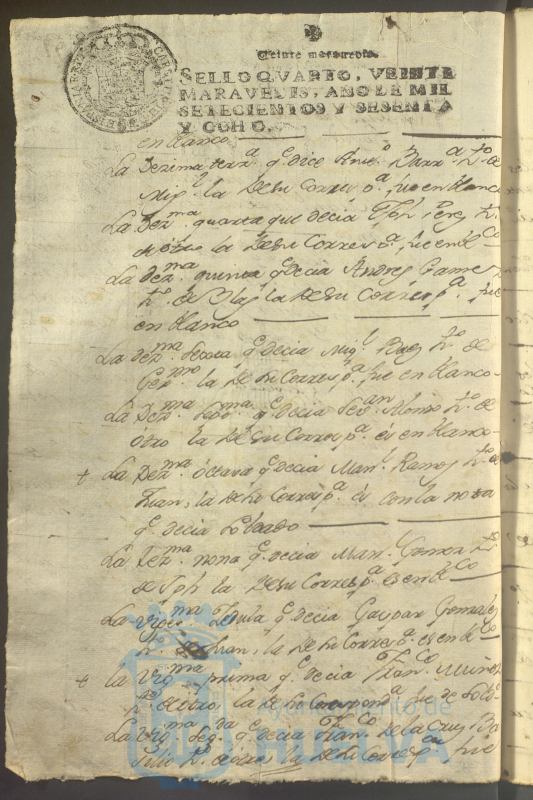 Veinte maravedis.
SELLO QVARTO, VEINTE
MARAVEDIS, AÑO DE MIL
SETECIENTOS Y SESENTA
Y OCHO.
en blanco
La Dezima terza. q.e dice Barr.a h.o de
Mig.l la de su Corresp.a fue en blanco
La Dez.ma quarta que decia Jph Perez h.o
de otro la de su Corresp.a fue en bl.co
La Dez.ma quinta q.e decia Andres Gomez
h.o de Blas la de su Corresp.a fue
en blanco
La Dez.ma Sexta q.e decia Mig.l Baez h.o de
la de su Corresp.a fue en blanco
La Dez.ma Sep.ma q.e decia Seb.an Alonso h.o de
otro la de su Corresp.a es en blanco
+ La Dez.ma octava q.e decia Man.l Ramos h.o de
Juan, la de su Corresp.a es con la nota
q.e decia Soldado
La Dez.ma nona q.e decia Man.l h.o
de Jph la de su Corresp.a es en bl.co
La Vig.ma Zedula q.e decia Gaspar Gonzalez
h.o de Juan, la de su Corresp.a es en bl.co
+ La Vig.ma prima q.e decia Fran.co Muñoz
h.o de otro, la de su Correspond.a fue de Sold.o
La Vig.ma Seg.da q.e decia Fran.co de la Cruz
h.o de otro la de su Corresp.a fue
Ayuntamiento de
HUELVA